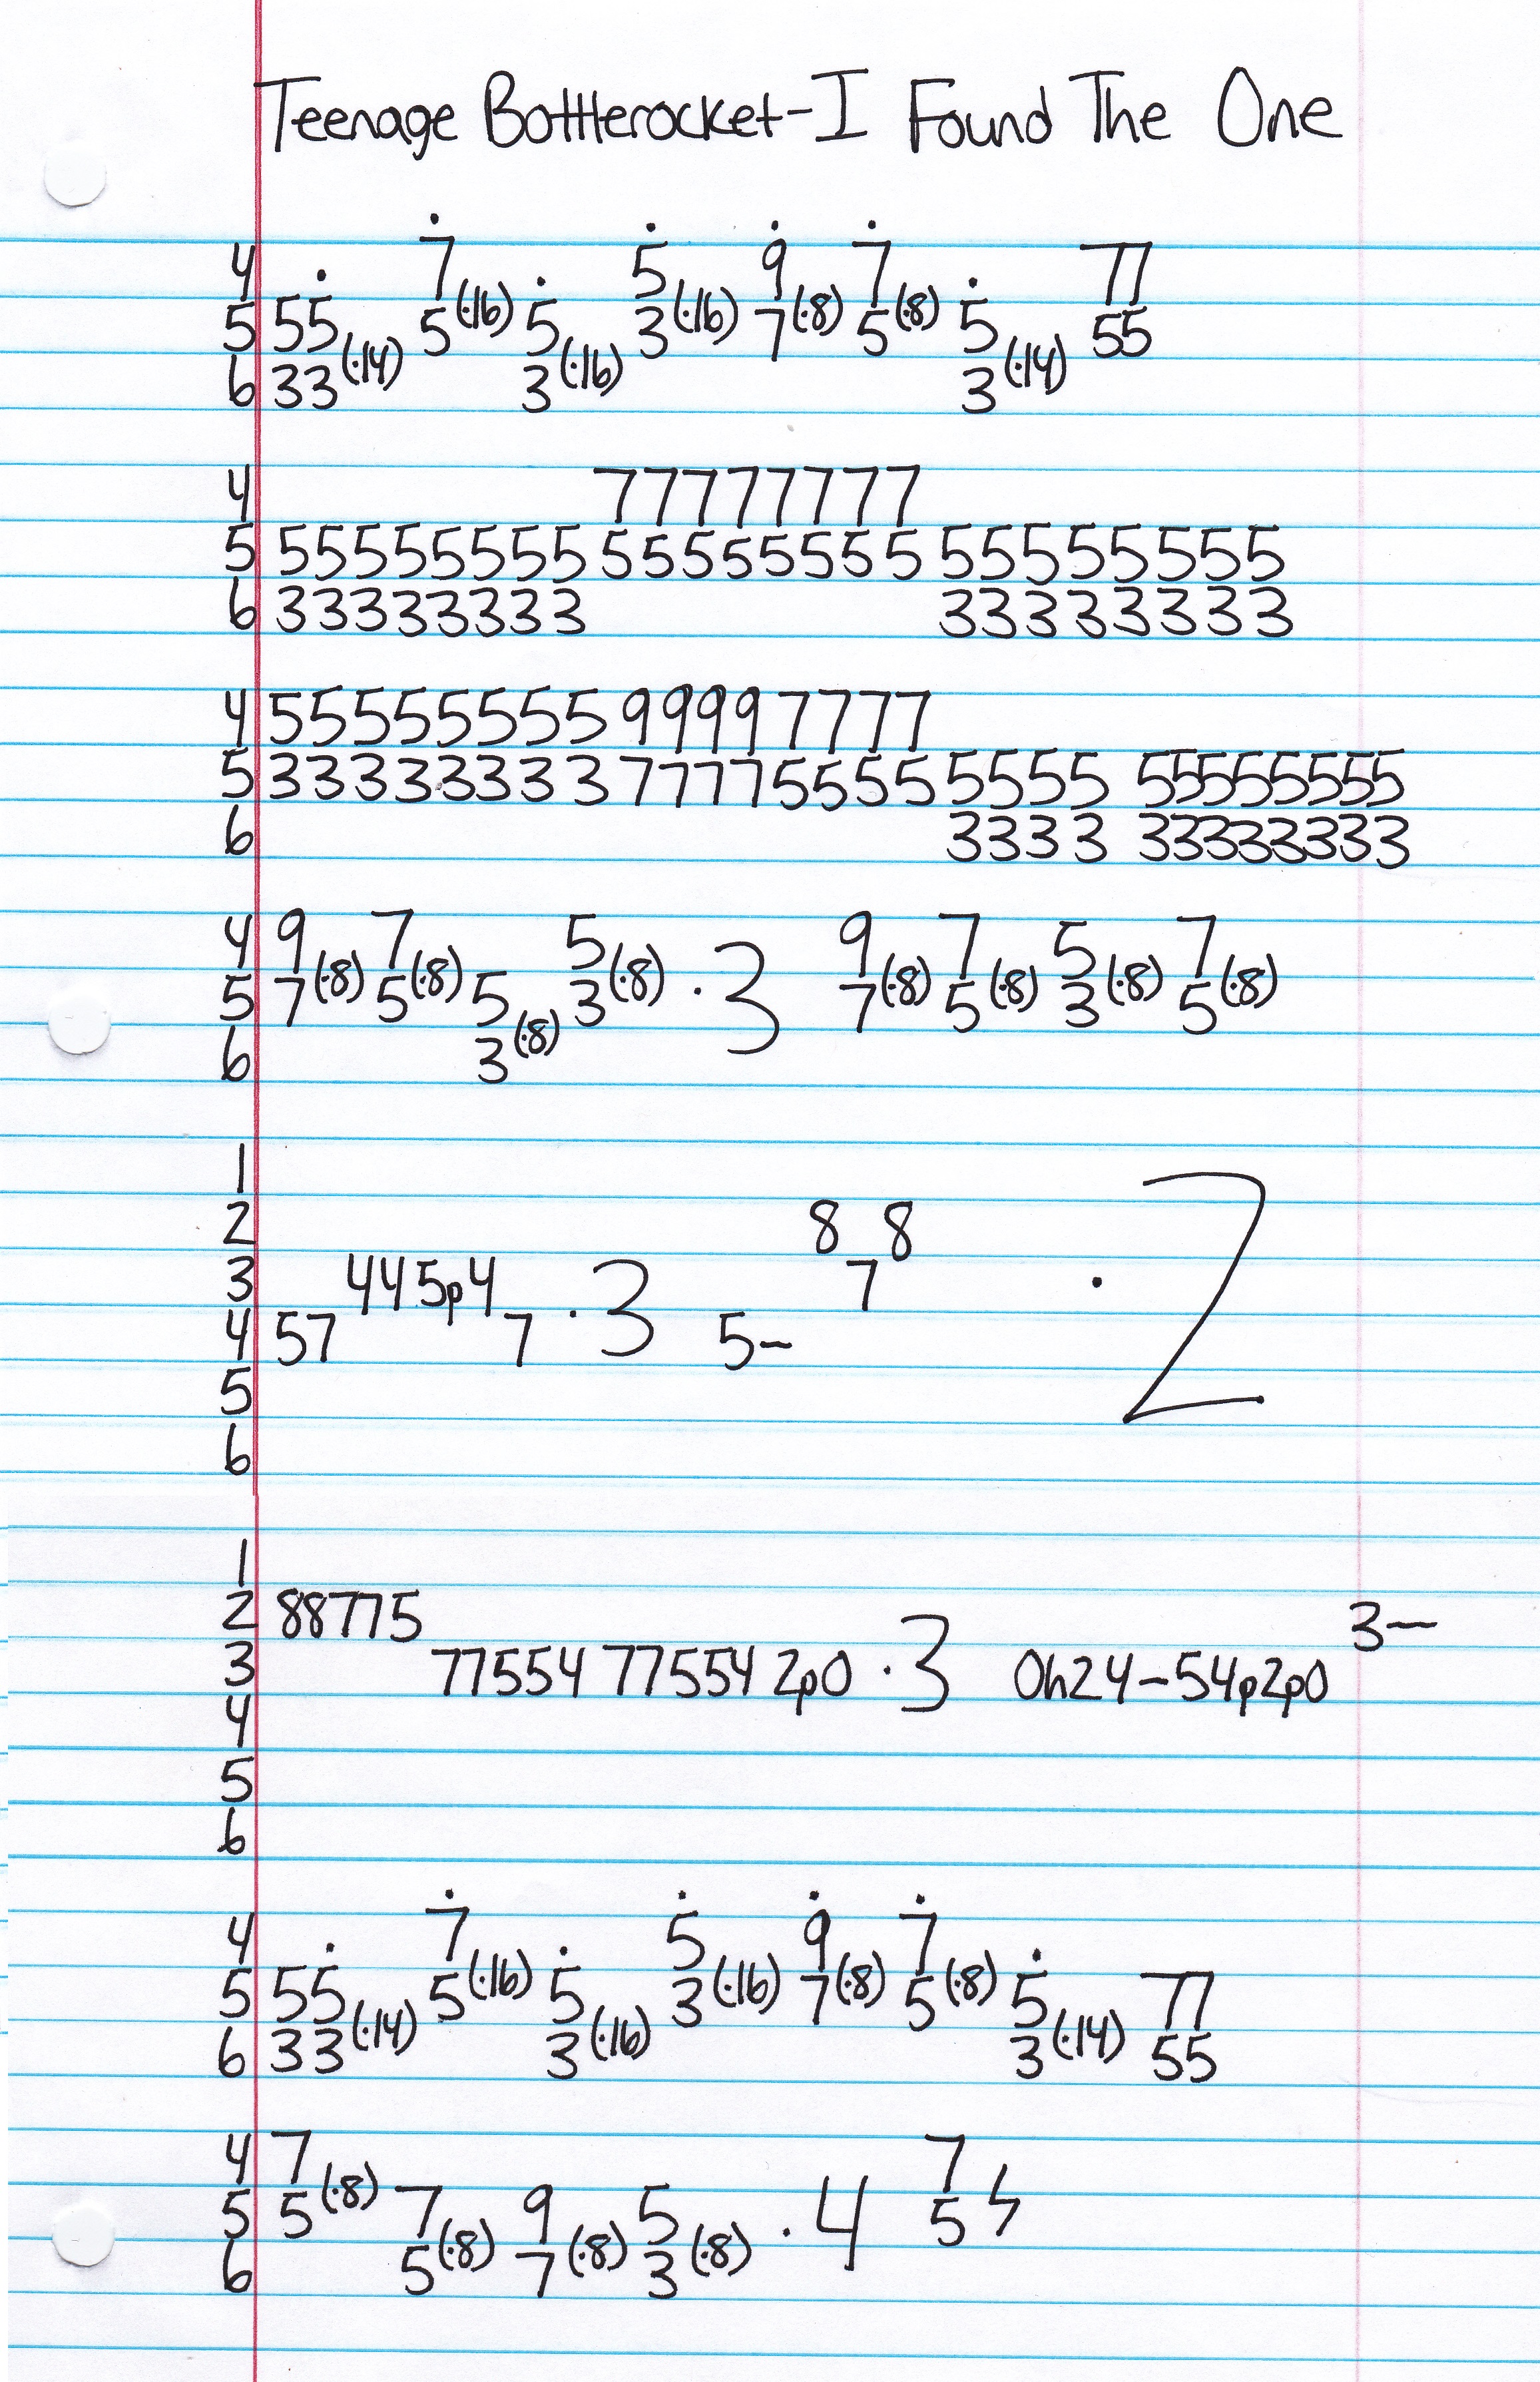 Teenage Bottlerocket-I Found The One
4 7̇ 5̇ 9̇ 7̇ 77
5 55̇ 5(·16) 5̇ 3(·16) 7(·8) 5(·8) 5̇ 55
6 33(·14) 3(·16) 3(·14)
4 77777777
5 55555555 55555555 55555555
6 33333333 33333333
4 55555555 9999 7777
5 33333333 7777 5555 5555 55555555
6 3333 33333333
4 9 7 5 9 7 5 7
5 7(·8) 5(·8) 5 3(·8) ·3 7(·8) 5(·8) 3(·8) 5(·8)
6 3(·8)
1
2 8 8
3 445p4 7
4 57 7 ·3 5– ·2
5
6
1
2 88775 3–
3 77554 77554 2p0 ·3 0h24–54p2p0
4
5
6
4 7̇ 5̇ 9̇ 7̇
5 55̇ 5(·16) 5̇ 3(·16) 7(·8) 5(·8) 5̇ 77
6 33(·14) 3(·16) 3(·14) 55
4 7 7
5 5(·8) 7 9 5 ·4 5
6 5(·8) 7(·8) 3(·8)